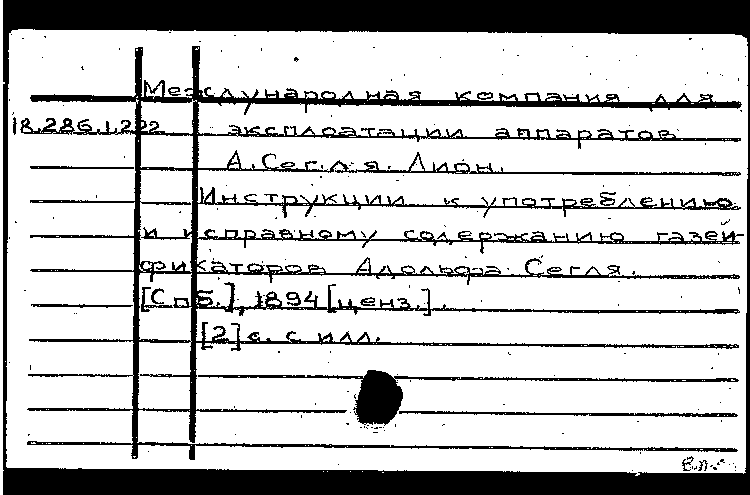 Международная компания для
18.286.1.292 эксплоатации аппаратов
А. Сегля. Лион.
Инструкции к употреблению
и исправному содержанию газей-
фикаторов Адольфа Сегля.
[Спб.], 1894 [ценз.].
[2] с. с илл.